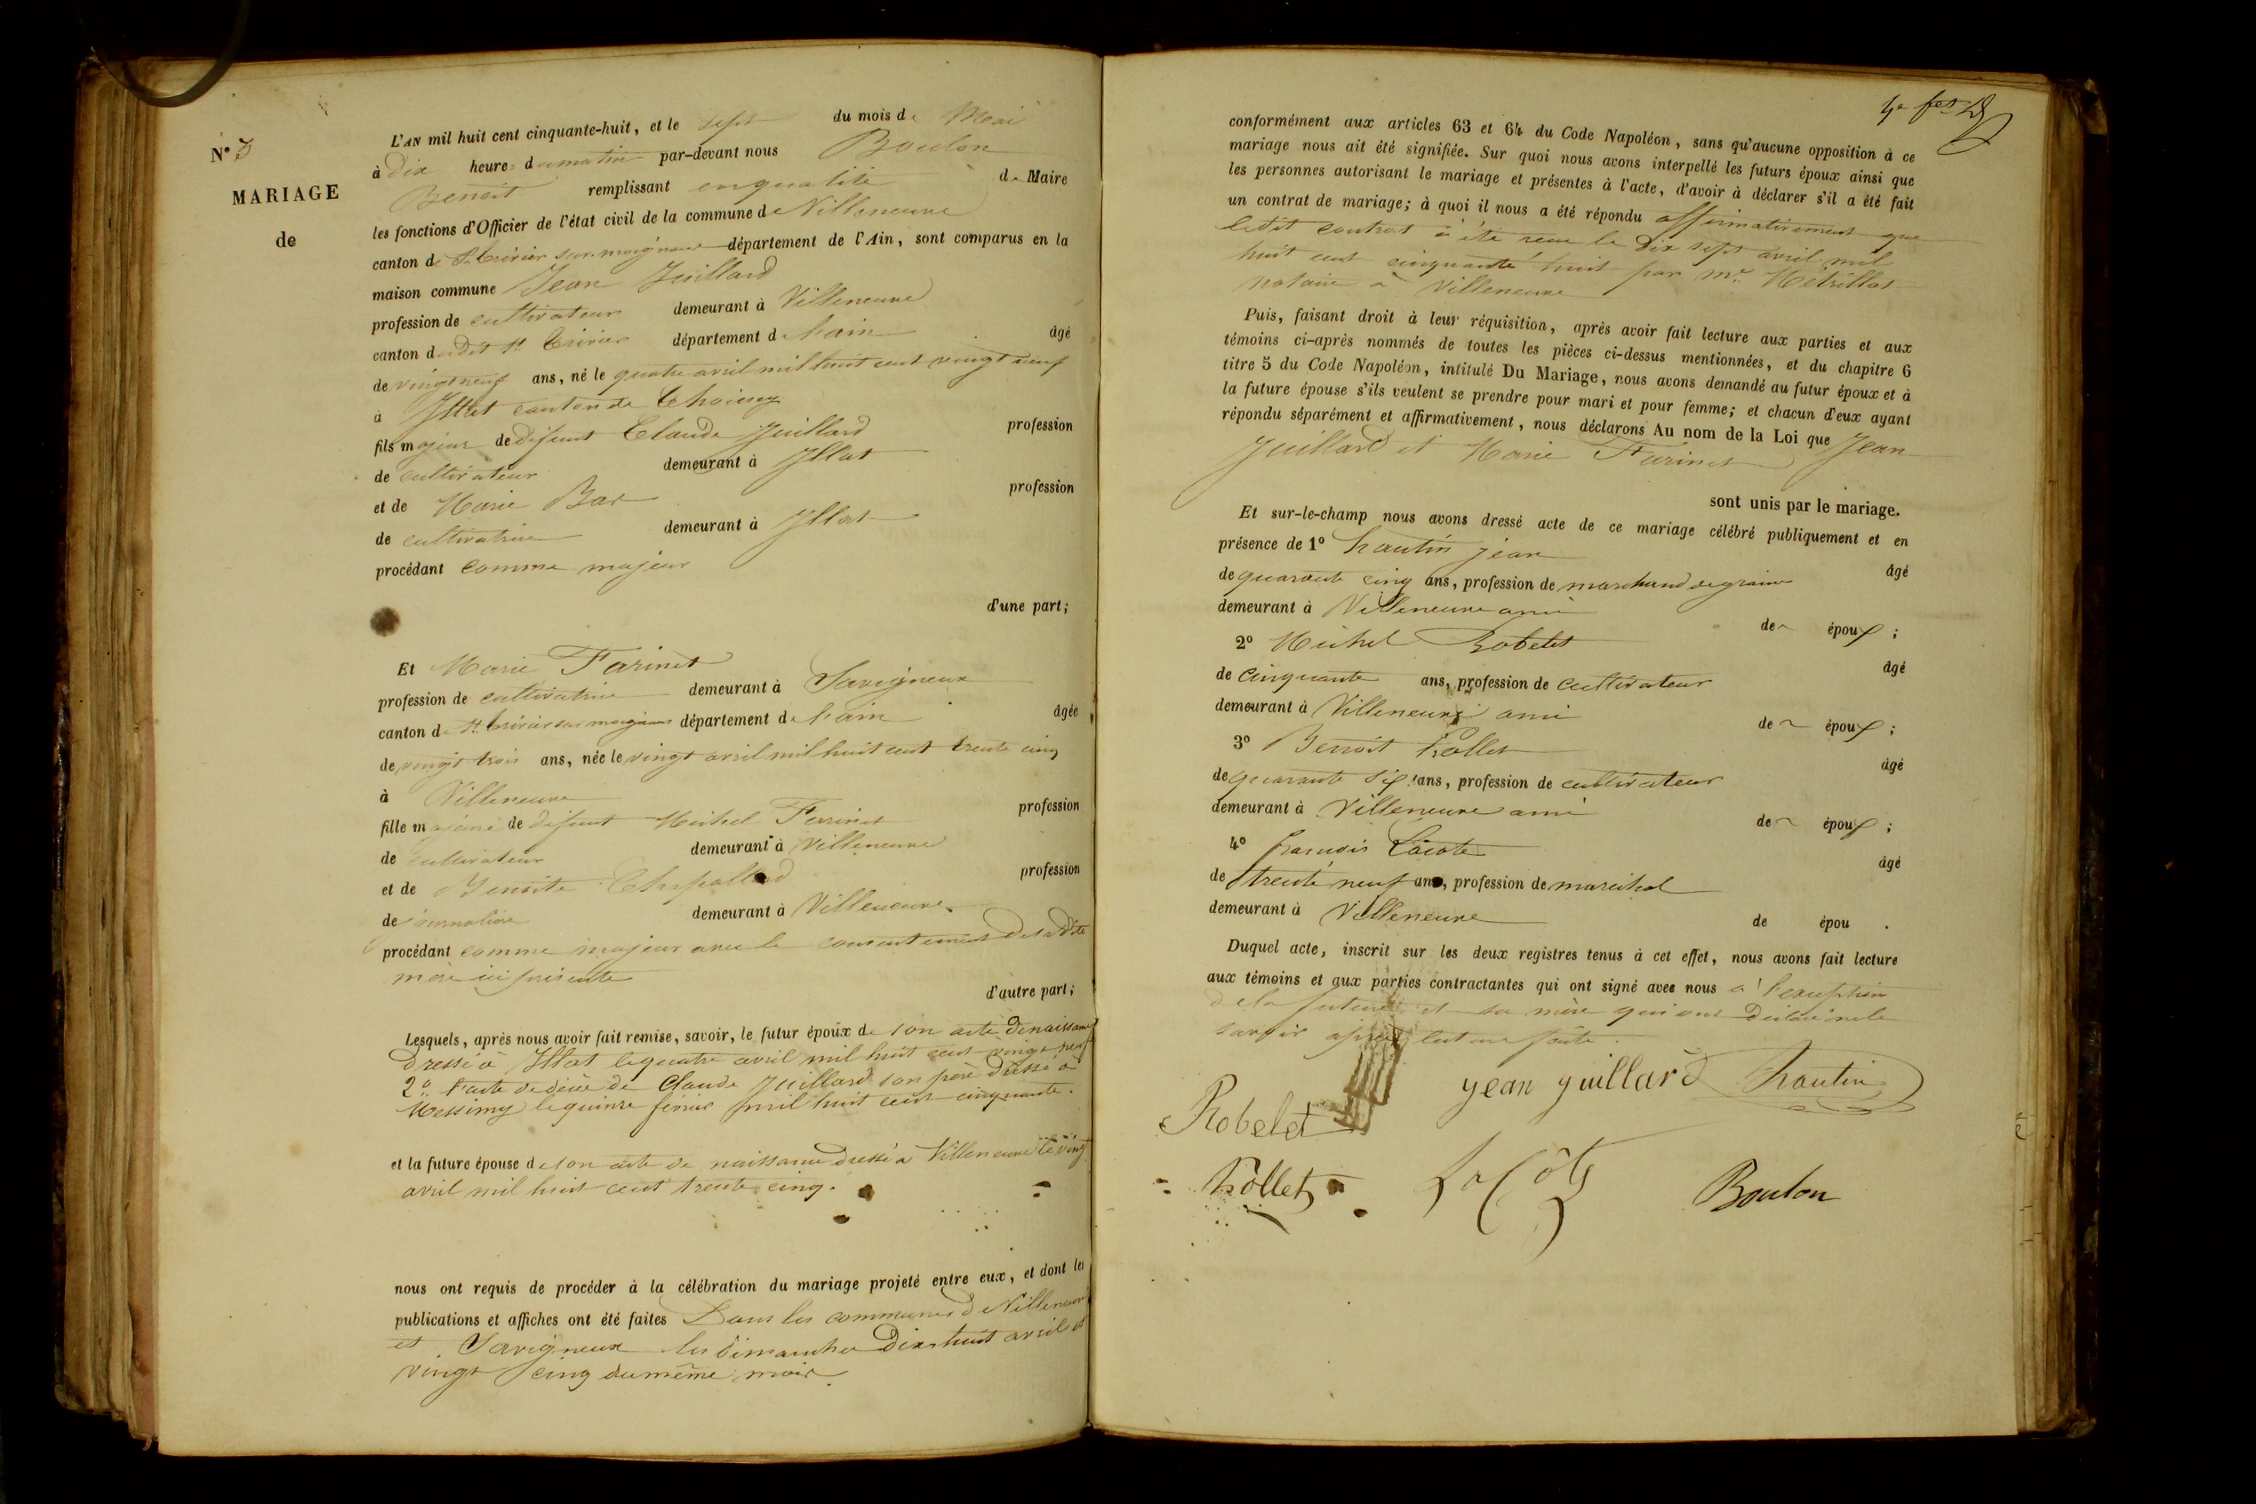 N° 3
MARIAGE
de
L'AN mil huit cent cinquante-huit, et le sept du mois de Mai
à Dix heures du matin par-devant nous Boulon
Benoit remplissant en qualité de Maire
les fonctions d'Officier de l'état civil de la commune de Villeneuve
canton de St Trivier sur moignans département de l'Ain, sont comparus en la
maison commune Jean Juillard
profession de cultivateur demeurant à Villeneuve
canton dudit St Trivier département de l'ain âgé
de vingt neuf ans, né le quatre avril mil huit cent vingt neuf
à Illiat canton de Thoissey
fils majeur de défunt Claude Juillard profession
de cultivateur demeurant à Illiat
et de Marie Bar profession
de cultivatrice demeurant à Illiat
procédant comme majeur
d'une part;
Et Marie Farinet
profession de cultivatrice demeurant à Savigneux
canton de St Trivier sur moignans département de l'ain âgée
de vingt trois ans, née le vingt avril mil huit cent trente cinq
à Villeneuve
fille majeure de défunt Michel Farinet profession
de cultivateur demeurant à Villeneuve
et de Benoite profession
de journalière demeurant à Villeneuve
procédant comme majeur avec le consentement de sa dite
mère ici présente
d'autre part;
Lesquels, après nous avoir fait remise, savoir, le futur époux de son acte de naissance
Dressé à Illiat le quatre avril mil huit cent vingt neuf
2° l'acte de décès de Claude Juillard son père dressé à
Messimy le quinze mil huit cent cinquante.
et la future épouse de son acte de naissance dressé à Villeneuve le vingt
avril mil huit cent trente cinq.
nous ont requis de procéder à la célébration du mariage projeté entre eux, et dont les
publications et affiches ont été faites Dans les communes de Villeneuve
et Savigneux les dimanches Dix huit avril et
vingt cinq du même mois.
conformément aux articles 63 et 64 du Code Napoléon, sans qu'aucune opposition à ce
mariage nous ait été signifiée. Sur quoi nous avons interpellé les futurs époux ainsi que
les personnes autorisant le mariage et présentes à l'acte, d'avoir à déclarer s'il a été fait
un contrat de mariage; à quoi il nous a été répondu affirmativement que
ledit contrat à été recu le Dix sept avril mil
huit cent cinquante huit par Mr. Métrillat
notaire à Villeneuve
Puis, faisant droit à leur réquisition, après avoir fait lecture aux parties et aux
témoins ci-après nommés de toutes les pièces ci-dessus mentionnées, et du chapitre 6
titre 5 du Code Napoléon, intitulé Du Mariage, nous avons demandé au futur époux et à
la future épouse s'ils veulent se prendre pour mari et pour femme; et chacun d'eux ayant
répondu séparément et affirmativement, nous déclarons Au nom de la Loi que Jean
Juillard et Marie Farinet
sont unis par le mariage.
Et sur-le-champ nous avons dressé acte de ce mariage célébré publiquement et en
présence de 1° Trautin jean
âgé
de quarante cinq ans, profession de marchand de grains
demeurant à Villeneuve ami
des époux;
2° Michel Robelet
âgé
de cinquante ans, profession de cultivateur
demeurant à Villeneuve ami
des époux;
3° Benoit Trollet
âgé
de quarante six ans, profession de cultivateur
demeurant à Villeneuve ami
des époux;
4° francois Lacote
âgé
de trente neuf ans, profession de maréchal
demeurant à Villeneuve
de épou .
Duquel acte, inscrit sur les deux registres tenus à cet effet, nous avons fait lecture
aux témoins et aux parties contractantes qui ont signé avec nous à l'exception
de la future et sa mère qui ont déclaré ne le
savoir après lecture faite.
jean juillard Trautin
Robelet
Trollet LaCôte Boulon